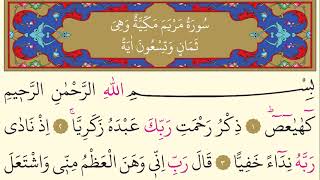 سُورَةُ مَرْيَمَ مَكِّيَّةٌ وَهِىَ
ثَمَانٍ وَتِسْعُونَ اٰيَةً
بِسْمِ اللّٰهِ الرَّحْمٰنِ الرَّحِيمِ
كٓهٰيٰعٓصٓ ﴿١﴾ ذِكْرُ رَحْمَتِ رَبِّكَ عَبْدَهُ زَكَرِيَّا ﴿٢﴾ اِذْ نَادٰى
رَبَّهُ نِدَٓاءً خَفِيًّا ﴿٣﴾ قَالَ رَبِّ اِنّ۪ى وَهَنَ الْعَظْمُ مِنّ۪ى وَاشْتَعَلَ